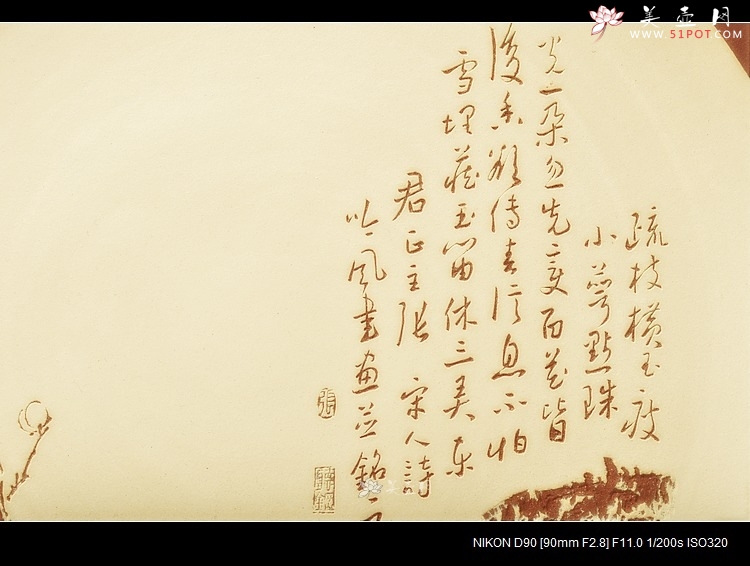 美壶网
WWW.51POT.COM
疏枝横玉瘦
小萼點珠
光一朵忽先變百花皆
後香欲傳春信息不怕
雪埋藏玉笛休三弄東
君正主張 宋人詩
吟風書畫並銘
張
NIKON D90 [90mm F2.8] F11.0 1/200s ISO320